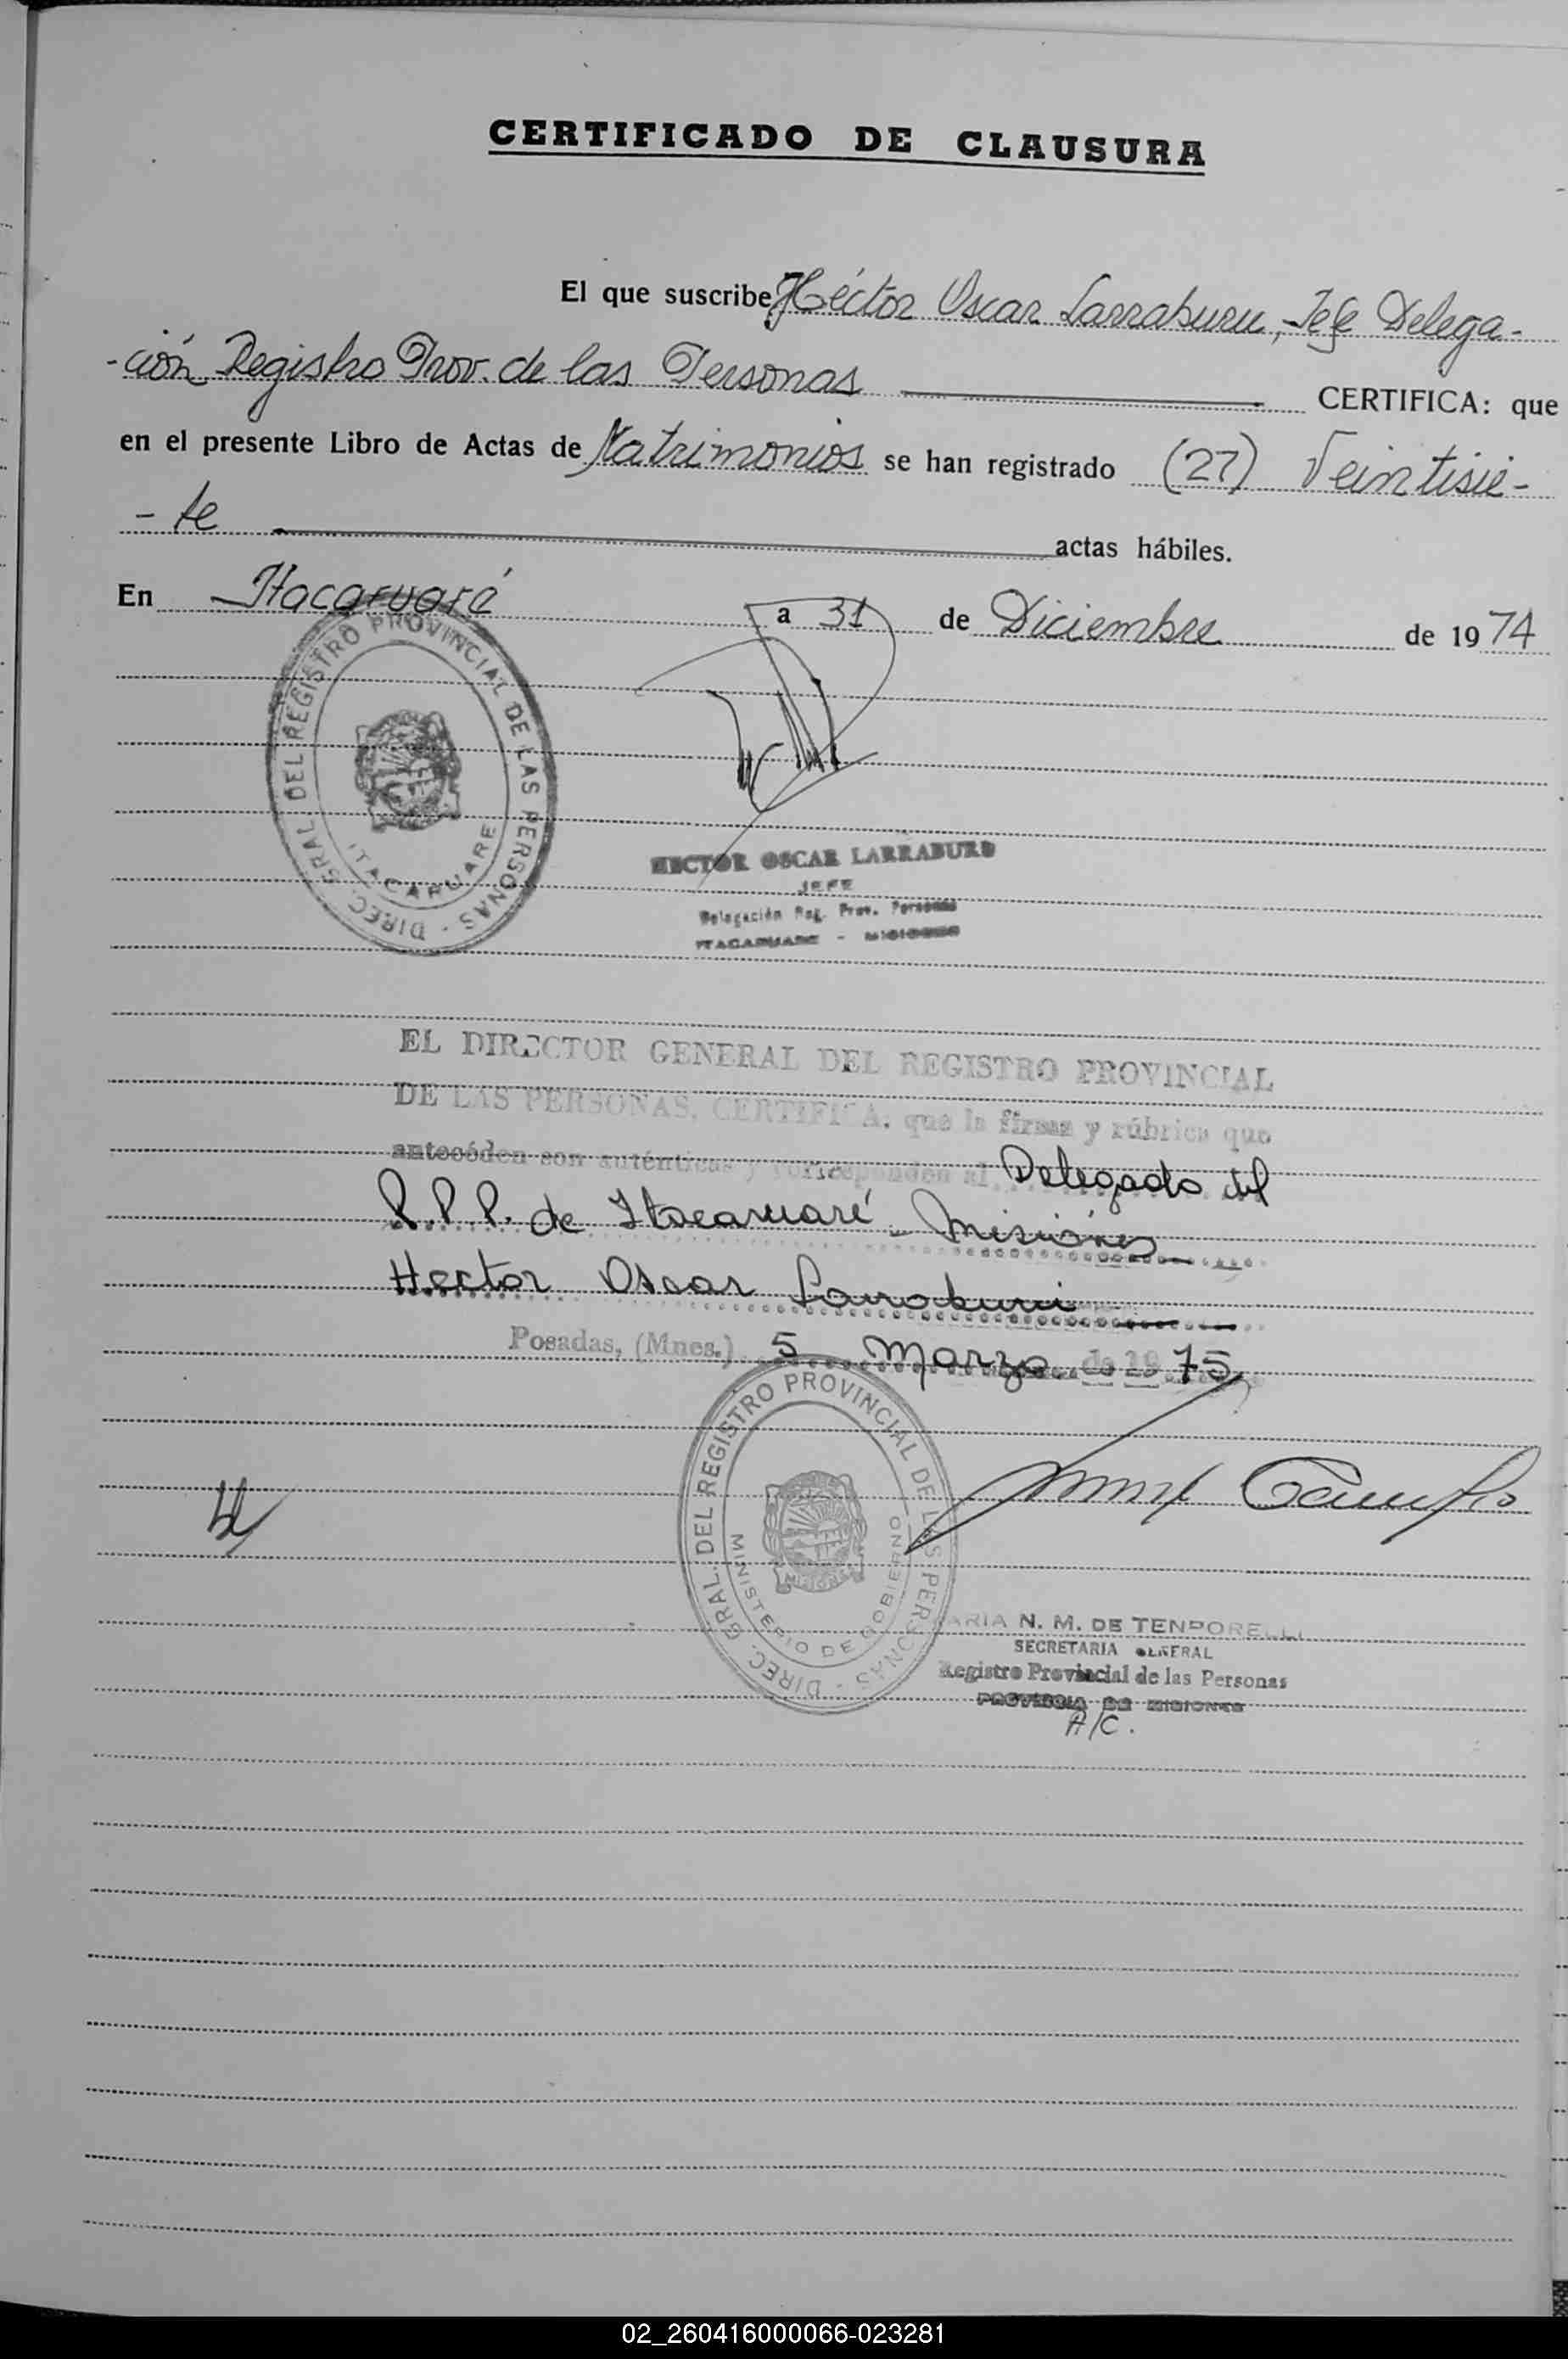 CERTIFICADO DE CLAUSURA
El que suscribe Héctor Oscar Larraburu, Jefe Delega-
-ción Registro Prov. de las Personas CERTIFICA: que
en el presente Libro de Actas de Matrimonios se han registrado (27) Veintisie-
-te actas hábiles.
En Itacaruaré a 31 de Diciembre de 1974
DIREC. GRAL. DEL REGISTRO PROVINCIAL DE LAS PERSONAS -
ITACARUARE
HECTOR OSCAR LARRABURU
JEFE
Delegación Reg. Prov. Personas
ITACARUARE - MISIONES
EL DIRECTOR GENERAL DEL REGISTRO PROVINCIAL
DE LAS PERSONAS, CERTIFICA, que la firma y rúbrica que
antecéden son auténticas y corresponden al Delegado del
R.P.P. de Itacaruaré - Misiones
Hector Oscar Larraburu
Posadas, (Mnes.) 5 Marzo de 1975
DIREC. GRAL. DEL REGISTRO PROVINCIAL DE LAS PERSONAS -
MINISTERIO DE GOBIERNO
MISIONES
MARIA N. M. DE TEMPORELLI
SECRETARIA GENERAL
Registro Provincial de las Personas
PROVINCIA DE MISIONES
A/C.
02_260416000066-023281